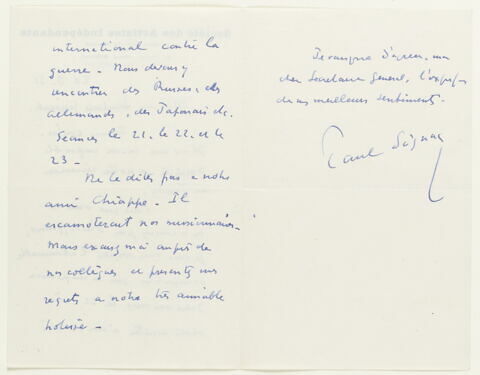 international contre la
guerre. Nous devons y
rencontrer des Russes, des
allemands, des Japonais &.
Séances le 21, le 22, et le
23 -
Ne le dites pas a notre
ami Chiappe. Il
escamoterait nos missionnaires.
Mais excusez moi auprès de
nos collègues et présentez mes
regrets a notre très aimable
hotesse -
Je vous prie d'agréer, mon
cher Secrétaire General, l'expression
de mes meilleurs sentiments.
Paul Signac